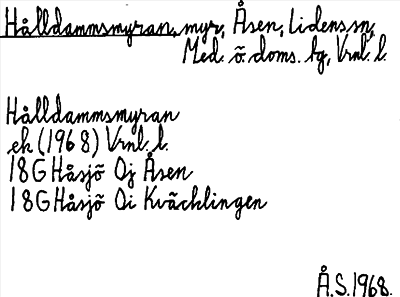 Hålldammsmyran, myr, Åsen, Lidens sn,
Med. ö. doms. lg, Vrnl. l.
Hålldammsmyran
ek (1968) Vrnl. l.
18G Håsjö Oj Åsen
18G Håsjö Oi Kvächlingen
Å.S. 1968.